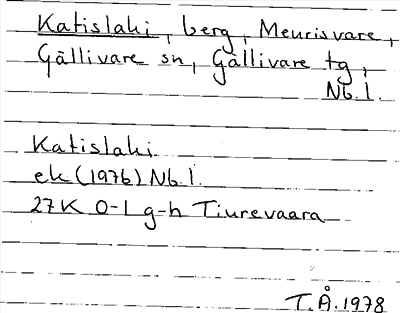 Katislaki, berg, Meurisvare,
Gällivare sn, Gällivare tg,
Nb.l.
Katislaki
ek (1976) Nb.l.
27K 0-1 g-h Tiurevaara
T.Å.1978